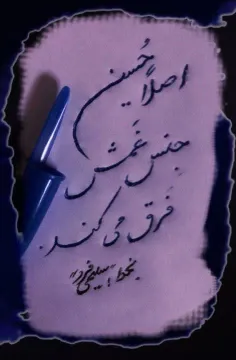 اصلاً حُسین
جنس غَمش
فَرق می کند.
بخط: "سلیمی فرد"